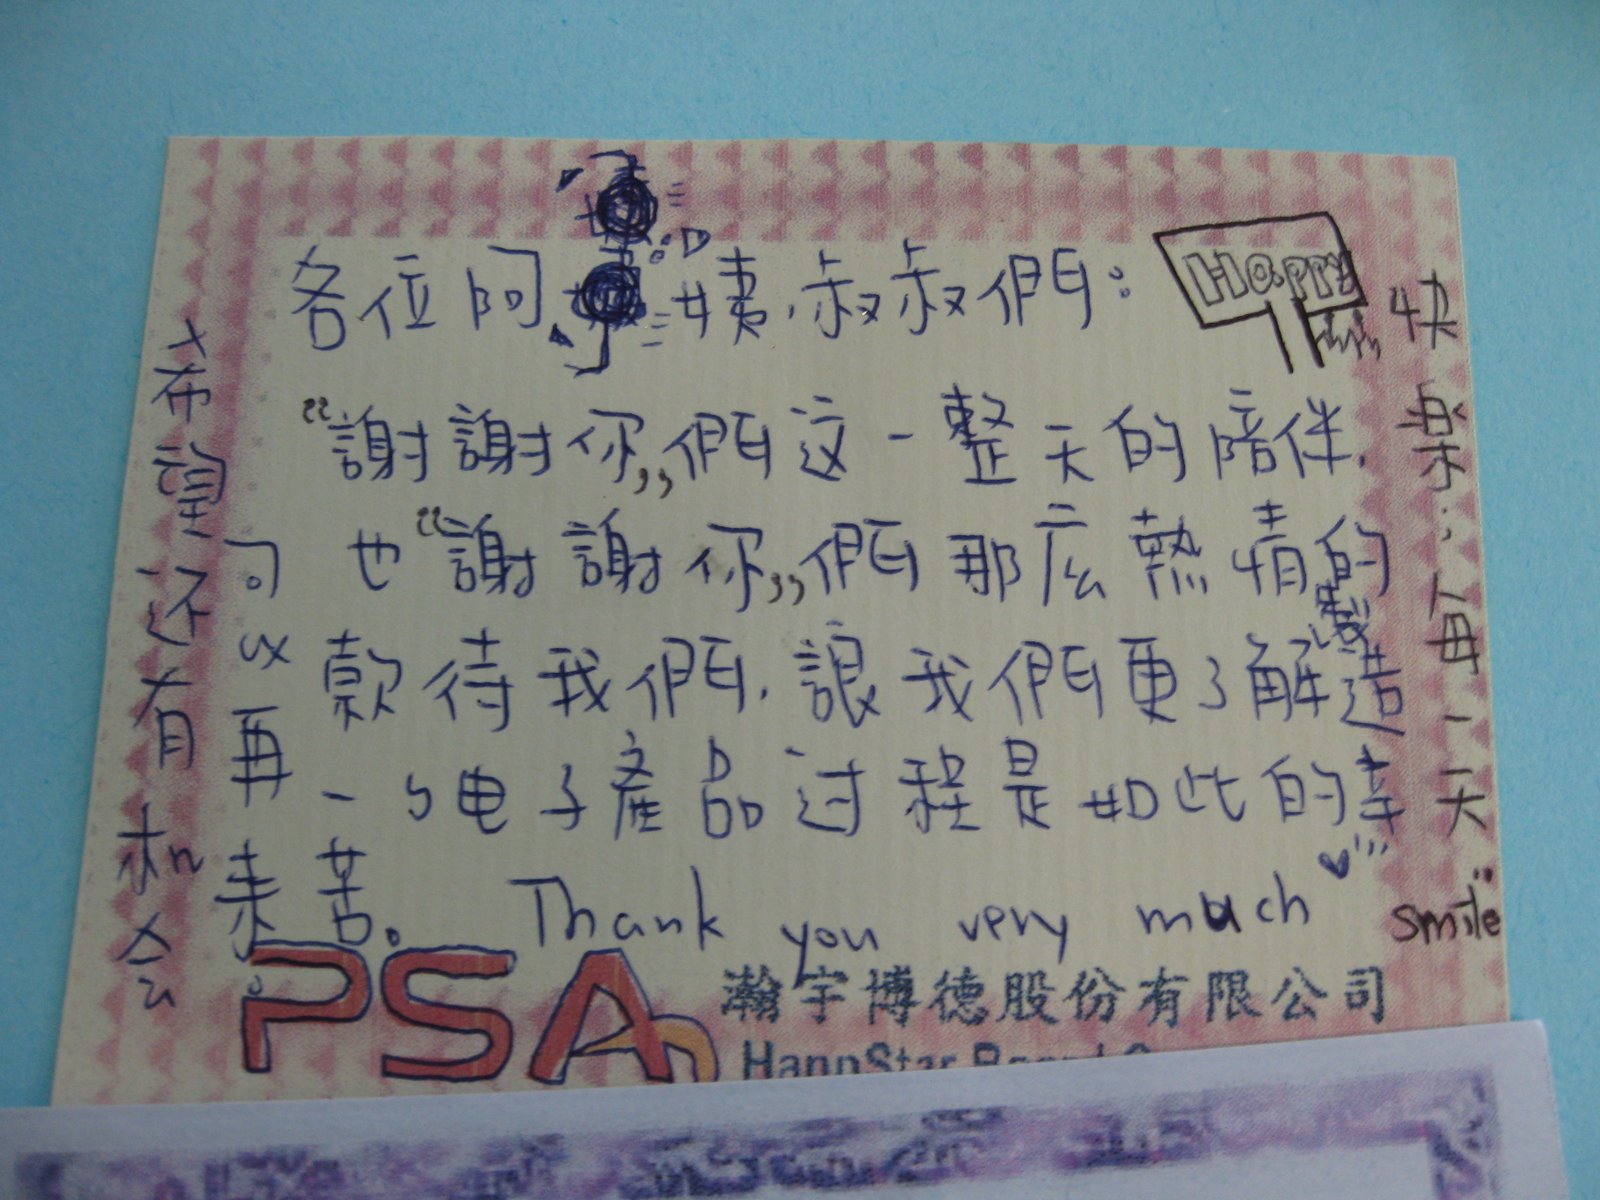 各位阿姨.叔叔們:
Happy
“謝謝你”們这一整天的陪伴.
也“謝謝你”們那広熱情的
款待我們.讓我們更了解製造
一ㄅ电子產品过程是如此的辛
苦。 Thank you very much
快乐:每一天
smile
希望还有机会
可以再来。
PSA
瀚宇博德股份有限公司
HannStar Board